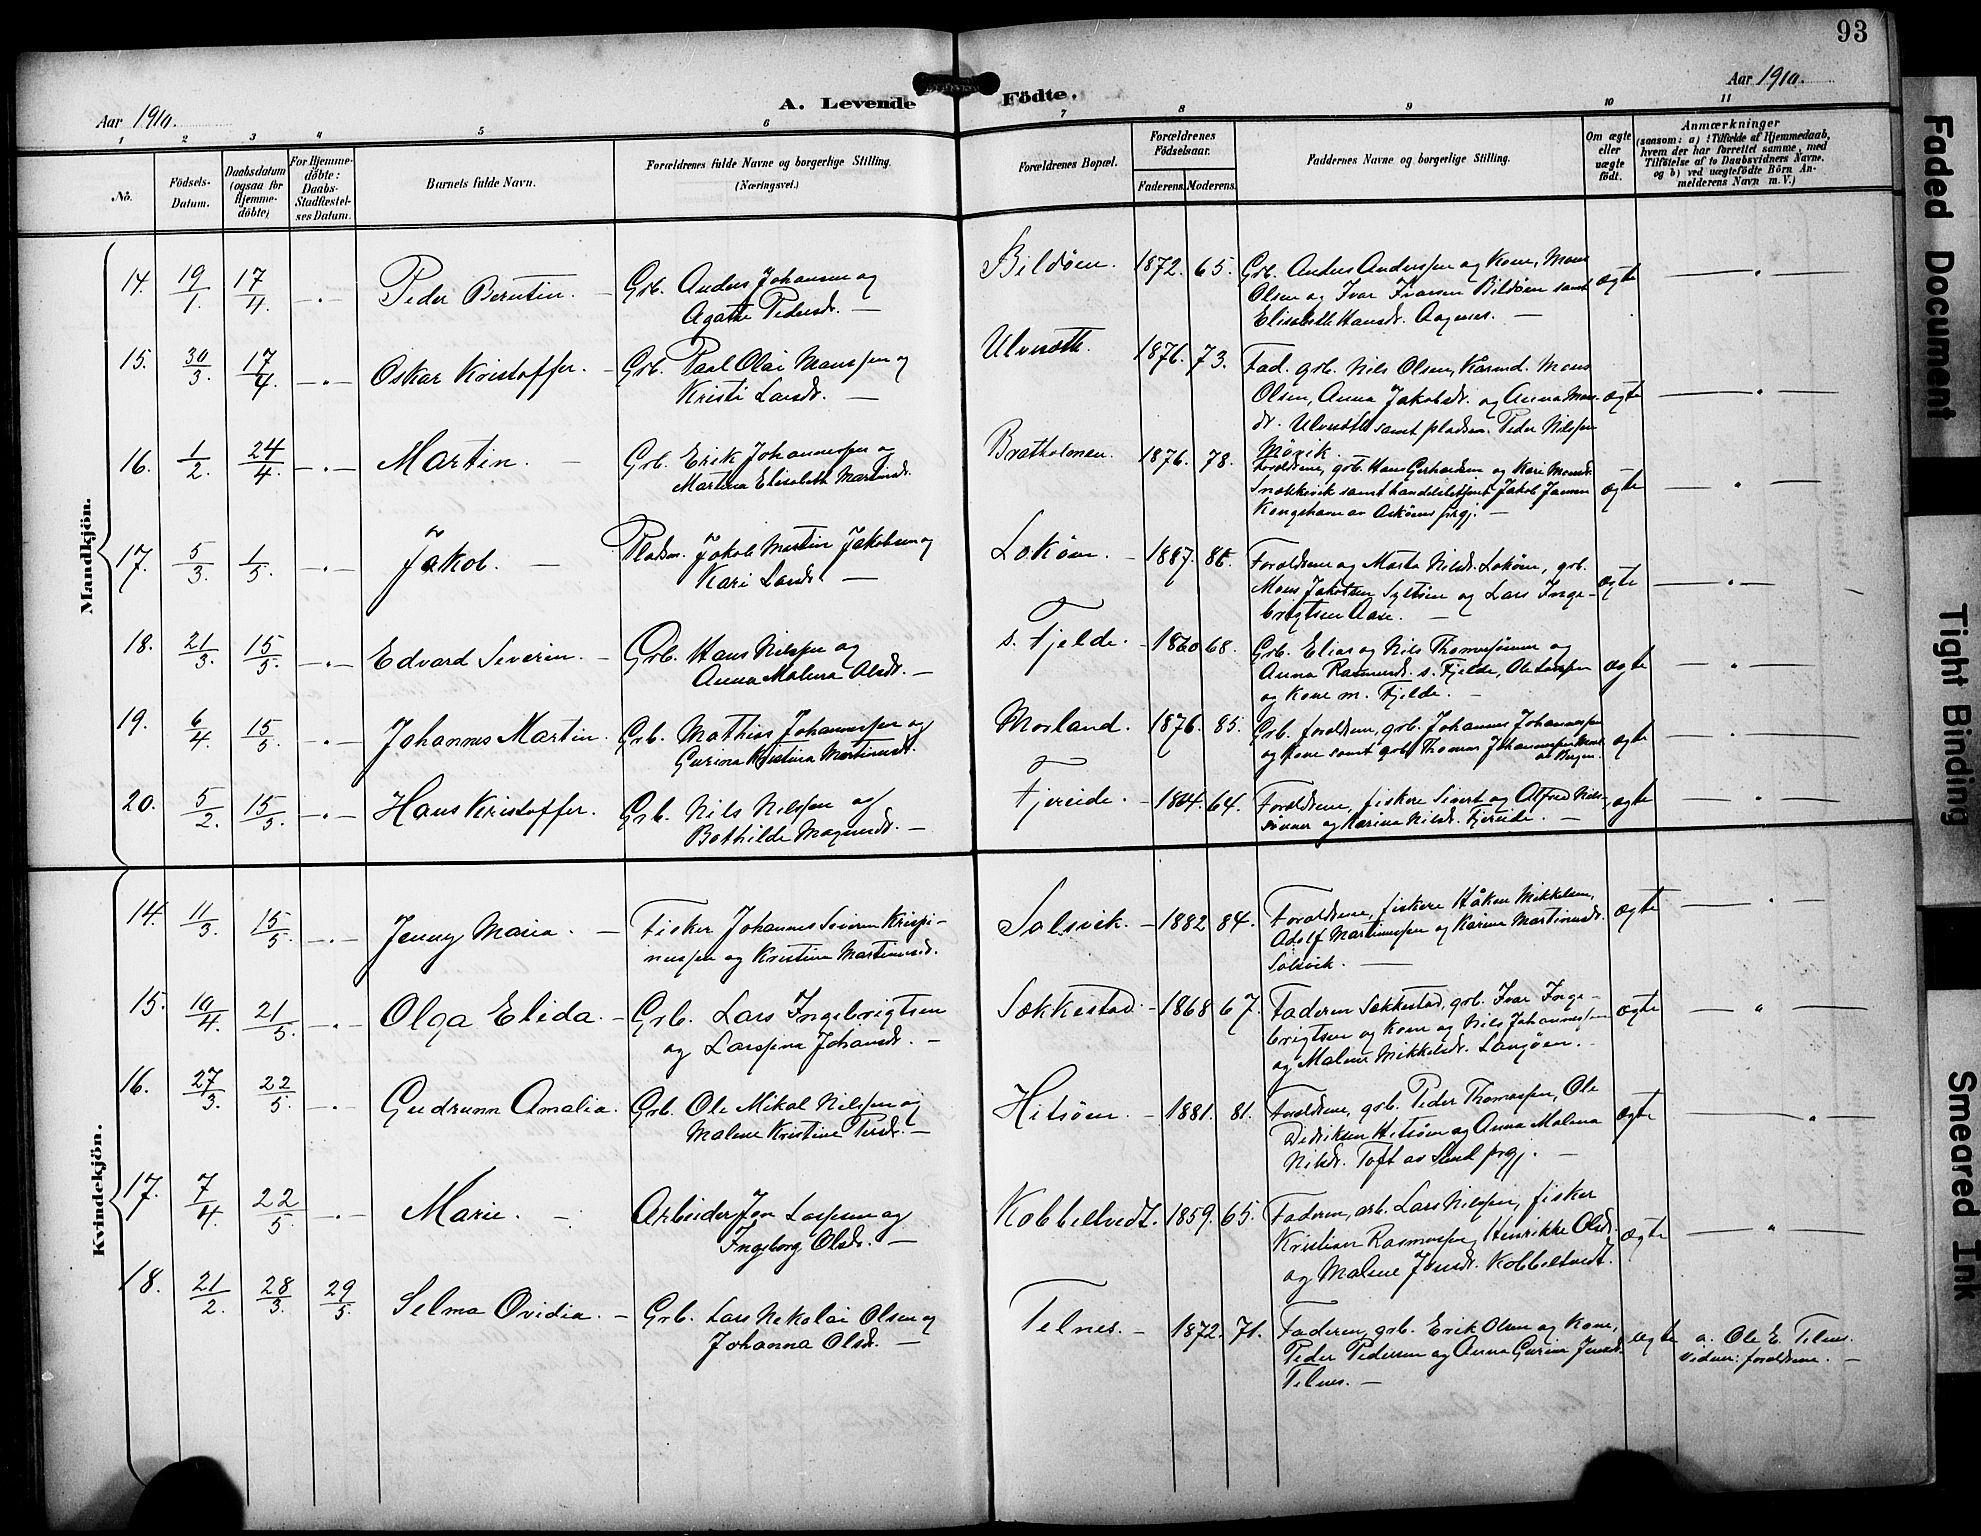 93
Aar 1910.
A. Levende Födte.
Aar 1910.
1 2 3 4 5 6 7 8 9 10 11
No.
Födsels-
Datum.
Daabsdatum
(ogsaa for
Hjemme-
döbte)
For Hjemme-
döbte:
Daabs-
Stadfæstel-
ses Datum.
Barnets fulde Navn.
Forældrenes fulde Navne og borgerlige Stilling.
(Næringsvei.)
Forældrenes Bopæl.
Forældrenes
Födselsaar.
Faderens. Moderens.
Faddernes Navne og borgerlige Stilling.
Om ægte
eller
uægte
født.
Anmærkninger
(saasom: a) i Tilfælde af Hjemmedaab,
hvem der har forrettet samme, med
Tilföielse af to Daabsvidners Navne.
og b) ved uægtefödte Börn An-
melderens Navn m. V.)
Mandkjön.
14. 19/1. 17/4. -"- Peder Berntin. Grb. Anders Johansen og
Agathe Pedersdr. —
Bildöen. 1872. 65. Grb. Anders Anderssen og Kone, Mons
Olsen og Ivar Ivarsen Bildöen samt
Elisabeth Hansdr. Aagnes. —
ægte — " —
15. 30/3. 17/4. -"- Oskar Kristoffer. Grb. Paal Olai Monssen og
Kristi Larsdr. —
Ulvesæth. 1876. 73. Fad. grb. Nils Olsen, Mons
Olsen, Anna Jakobsdr. og Anna Mons-
dr. Ulvesæth samt pladsm. Peder Nilssen
Mövik.
ægte — " —
16. 1/2. 24/4. -"- Martin. — Grb. Erik Johannessen og
Martha Elisabeth Martinsdr.
Bratholmen. 1876. 78. Forældrene, grb. Hans Gerhardsen og Kari Monsdr.
Snekkevik samt handelsbetjent Jakob Jansen
Kongshavn av Asköens prgj. —
ægte — " —
17. 5/3. 1/5. -"- Jakob. — Pladsm. Jakob Martin Jakobsen og
Kari Larsdr. —
Loköen. — 1887. 86. Forældrene og Marta Nilsdr. Loköen, grb.
Mons Jakobsen Syltöen og Lars Inge-
brigtsen Aase. —
ægte — " —
18. 21/3. 15/5. -"- Edvard Severin. — Grb. Hans Nilssen og
Anna Malena Olsdr. —
s. Fjelde. — 1860 68. Grb. Elias og Nils Thomassönner og
Anna Rasmusdr. s. Fjelde, Ole Larssen
og Kone m. Fjelde. —
ægte — " —
19. 6/4. 15/5. -"- Johannes Martin. Grb. Mathias Johannessen og
Gurina Kristina Martinusdr.
Morland. 1876. 85. Grb. forældrene, grb. Johannes Johannessen
og Kone samt grb. Thomas Johannessen
av Bergen.
ægte — " —
20. 5/2. 15/5. -"- Hans Kristoffer. Grb. Nils Nilssen og
Bothilde Magnusdr. —
Fjereide. — 64. Forældrene, fiskere Sivert og Alfred Nils-
sönner og Karina Nilsdr. Fjereide. —
ægte — " —
Kvindekjön.
14. 11/3. 15/5. -"- Jenny Maria. — Fisker Johannes Severin Krispi-
nussen og Kristina Martinusdr.
Solsvik. — 1882 84. Forældrene, fiskere Håkon Mikkelsen,
Adolf Martinussen og Karina Martinusdr.
Solsvik. —
ægte — " —
15. 10/4. 21/5. -"- Olga Elida. — Grb. Lars Ingebrigtsen
og Larsina Johansdr. —
Sækkestad. — 1868 67. Faderen Sækkestad, grb. Ivar Inge-
brigtsen og Kone og Nils Johannessen
og Malene Mikkelsdr. Langöen. —
ægte — " —
16. 27/3. 22/5. -"- Gudrunn Amalia. Grb. Ole Mikal Nilssen og
Malene Kristine Persdr. —
Hitsöen. — 1881. 81. Forældrene, grb. Peder Thomassen, Ole
Didriksen Hitsöen og Anna Malena
Nilsdr. Toft av Sund prgj. —
ægte — " —
17. 7/4. 22/5. -"- Marie. — Arbeider Jon Larssen og
Ingeborg Olsdr. —
Kobbeltvedt. 1859. 65. Faderen, arb. Lars Nilssen, fisker
Kristian Rasmussen, Henrikke Olsdr.
og Malene Jonsdr. Kobbeltvedt.
ægte — " —
18. 21/2. 28/3. 29/5. Selma Ovidia. — Grb. Lars Nekolai Olsen og
Johanna Olsdr. —
Telnes. — 1872. 71. Faderen, grb. Erik Olsen og Kone,
Peder Pedersen og Anna Gurine Jensdr.
Telnes. —
ægte a. Ole E. Telnes.
Vidner: forældrene. —
Faded Document
Tight Binding
Smeared Ink